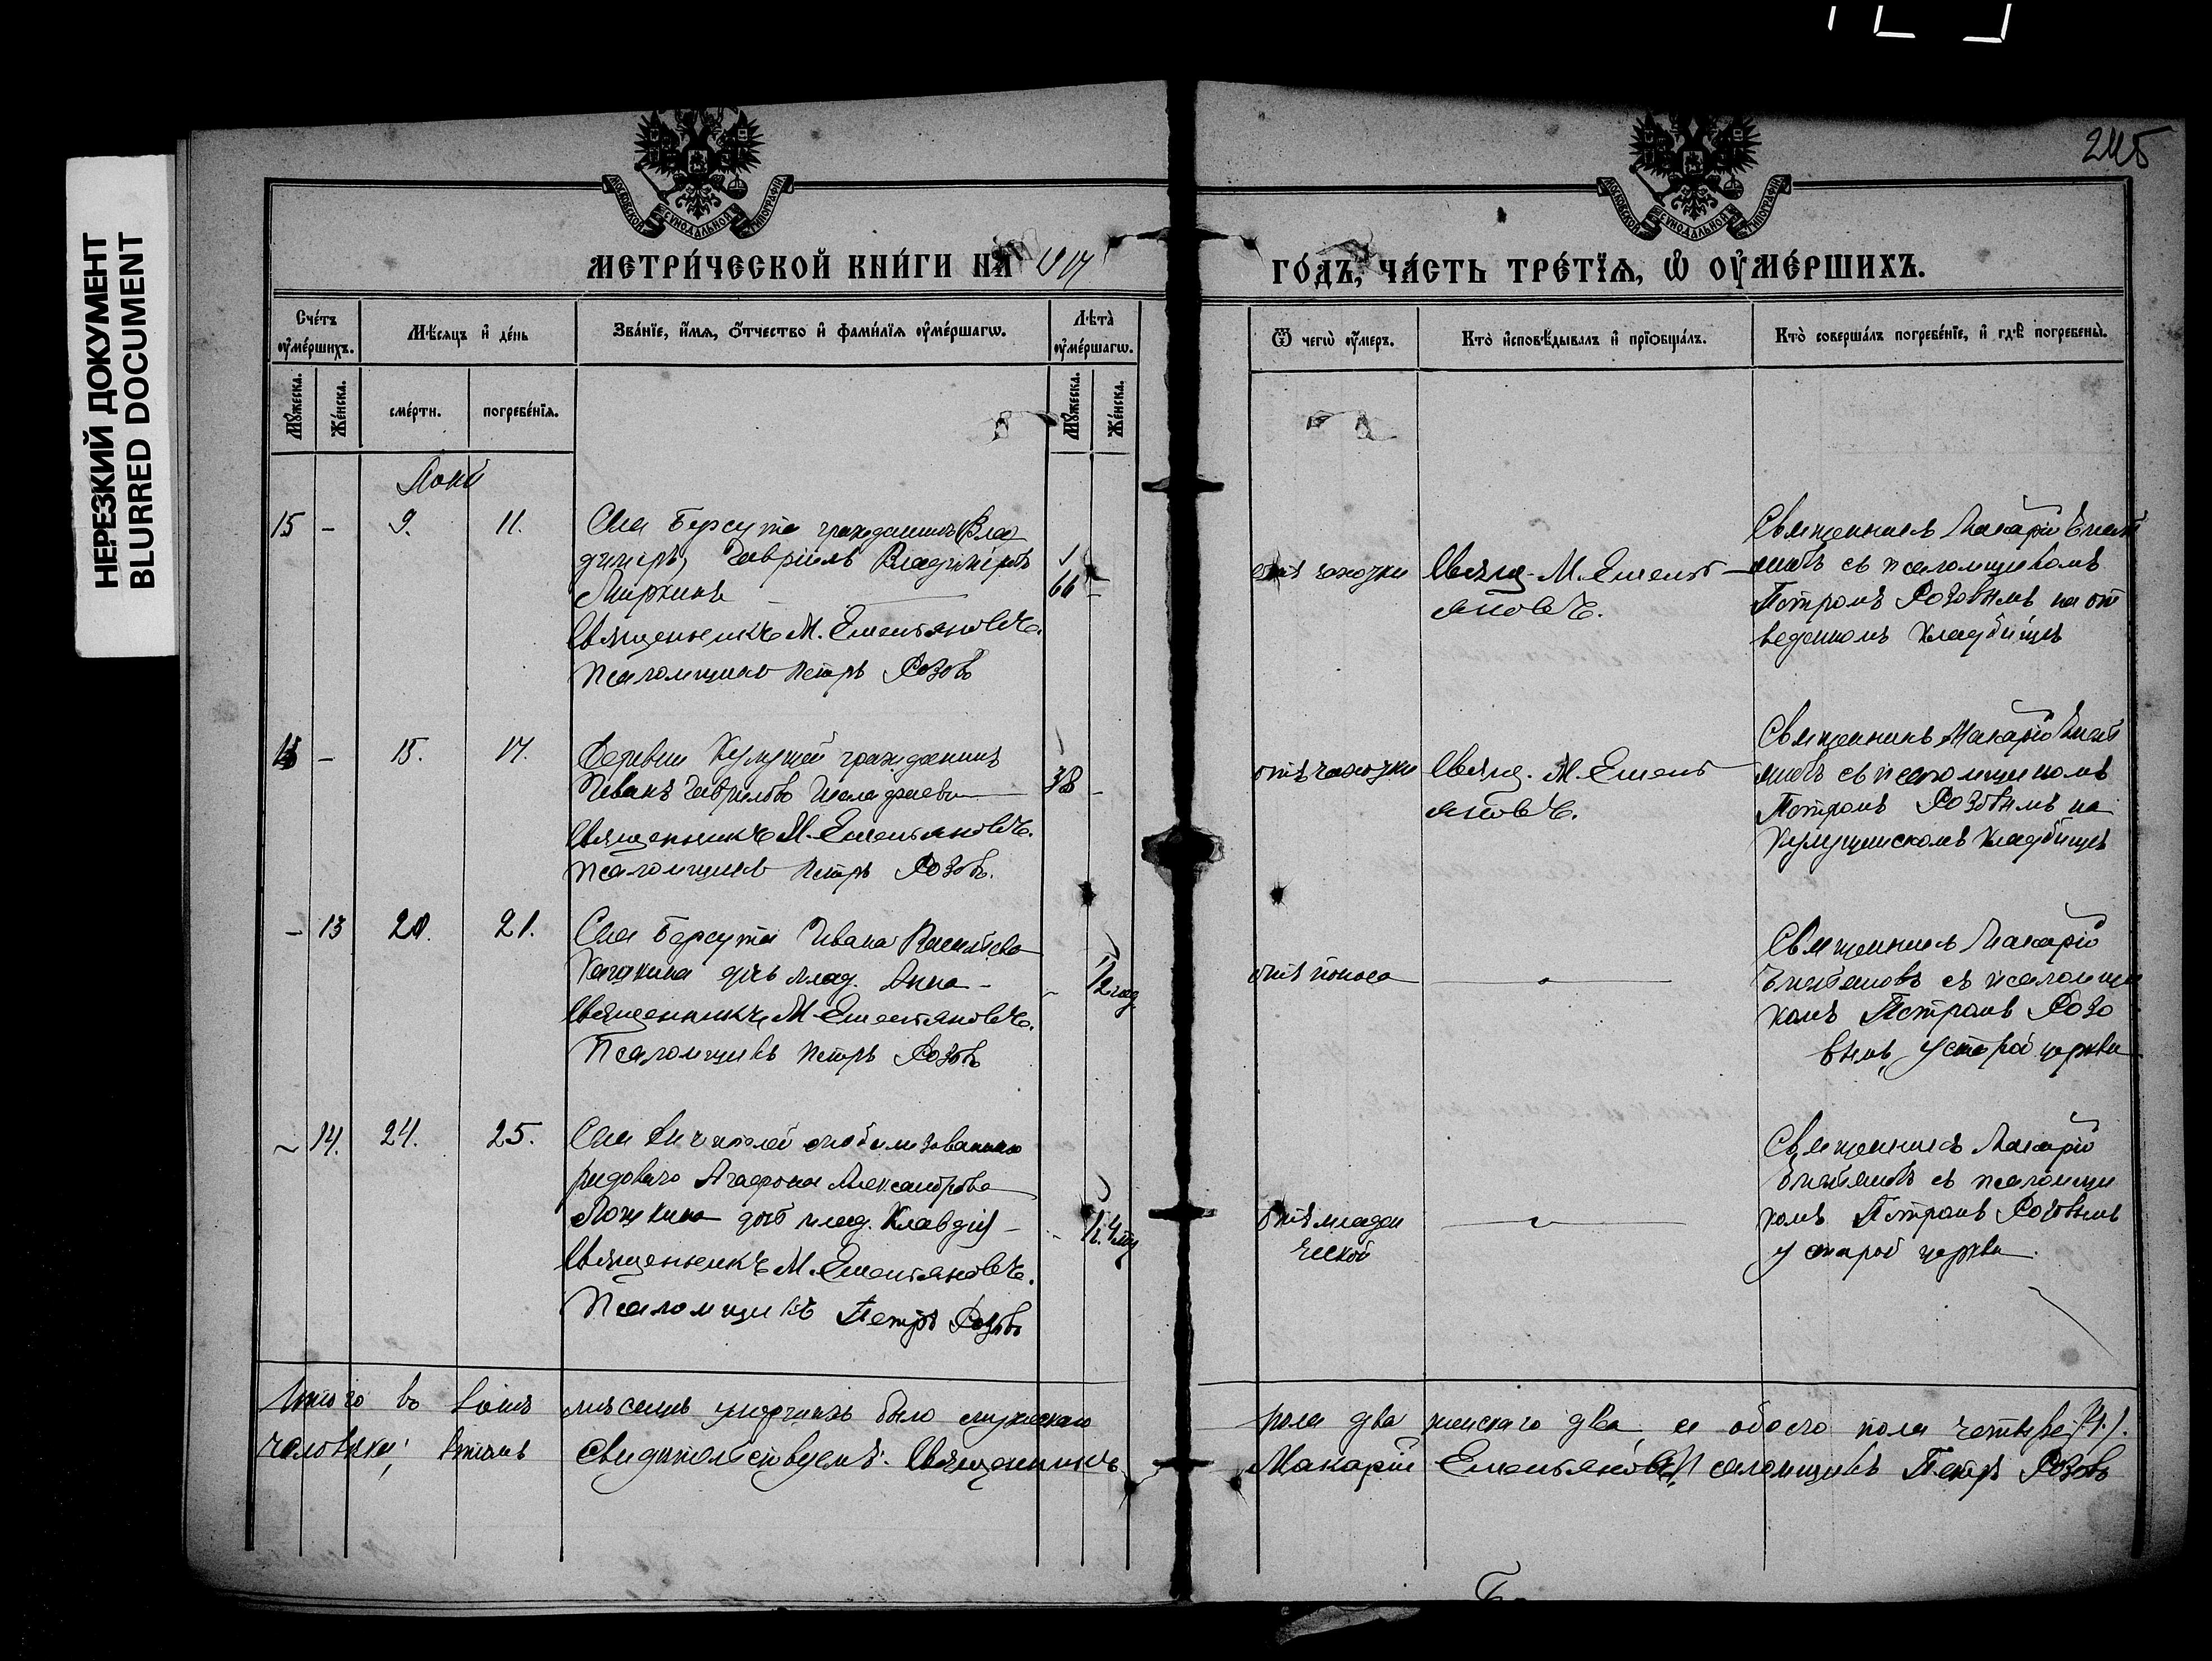 НЕРЕЗКИЙ ДОКУМЕНТ
BLURRED DOCUMENT
245
МОСКОВСКОЙ СѴНОДАЛЬНОЙ ТИПОГРАФІИ
МОСКОВСКОЙ СѴНОДАЛЬНОЙ ТИПОГРАФІИ
МЕТРИ́ЧЕСКОЙ КНИ́ГИ НА 1917
ГО́ДЪ, ЧА́СТЬ ТРЕ́ТЇѦ, Ѡ҆ ОУ҆МЕ́РШИХЪ.
Сче́тъ оу҆ме́ршихъ.
Мѣ́сяцъ и҆ де́нь
Зва́нїе, и҆́мѧ, ѻ҆́тчество и҆ фами́лїѧ оу҆ме́ршагѡ.
Лѣта̀ оу҆ме́ршагѡ.
Ѿ чегѡ̀ оу҆́меръ.
Кто̀ и҆сповѣ́дывалъ и҆ прїѻбща́лъ.
Кто̀ соверша́лъ погребе́нїе, и҆ гдѣ̀ погребены̀.
Мꙋ́жеска.
Же́нска.
сме́рти.
погребе́нїѧ.
Мꙋ́жеска.
Же́нска.
Іюнь
15 - 9. 11.
Села Берсута гражданинъ (Вла
димиръ) Гавріилъ Владиміровъ
66 -
Священникъ М. Емельяновъ.
Псаломщикъ Петръ Розовъ
отъ чахотки
Священ. М. Емель
яновъ.
Священникъ Макарій Емель
яновъ съ псаломщикомъ
Петромъ Розовымъ на от
веденномъ кладбищѣ
- 15. 17.
Деревни гражданинъ
Иванъ Гавриловъ
38 -
Священникъ М. Емельяновъ.
Псаломщикъ Петръ Розовъ.
отъ чахотки
Священ. М. Емель
яновъ.
Священникъ Макарій Емель
яновъ съ псаломщикомъ
Петромъ Розовымъ на
кладбищѣ
- 13 20. 21.
Села Берсута Ивана Васильева
дчь млад. Анна -
- 1/2 год
Священникъ М. Емельяновъ.
Псаломщикъ Петръ Розовъ
отъ поноса
Священникъ Макарій
Емельяновъ съ псаломщи
комъ Петромъ Розо
вымъ, у старой церкви
- 14. 24. 25.
Села мобилизованнаго
рядового Агафона Александрова
дчь млад. Клавдія -
Священникъ М. Емельяновъ.
Псаломщикъ Петръ Розовъ
отъ младен
ческой
Священникъ Макарій
Емельяновъ съ псаломщи
комъ Петромъ Розовымъ
у старой церкви.
Итого въ Іюнѣ мѣсяцѣ умершихъ было мужескаго пола два женскаго два, а обоего пола четыре (4).
человѣка; въ томъ свидѣтельствуемъ: Священникъ Макарій Емельяновъ Псаломщикъ Петръ Розовъ